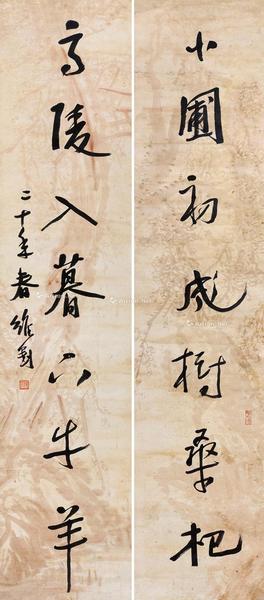 小圃初成樹桑杷
高陵入暮下牛羊
二十年春維釗